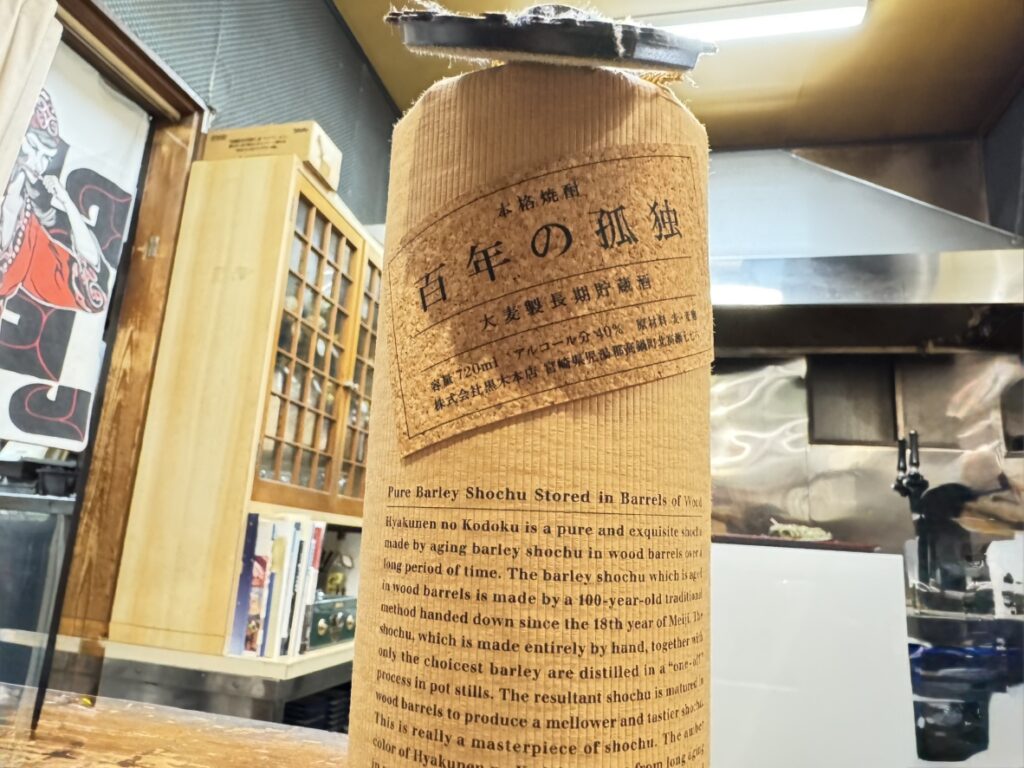 本格焼酎
百年の孤独
大麦製長期貯蔵酒
容量 720ml アルコール分 40% 原材料 麦・麦麹
株式会社黒木本店 宮崎県児湯郡高鍋町北高鍋
Pure Barley Shochu Stored in Barrels of Wood
Hyakunen no Kodoku is a pure and exquisite shochu
made by aging barley shochu in wood barrels over a
long period of time. The barley shochu which is aged
in wood barrels is made by a 100-year-old traditional
method handed down since the 18th year of Meiji. The
shochu, which is made entirely by hand, together with
only the choicest barley are distilled in a "one-of"
process in pot stills. The resultant shochu is matured in
wood barrels to produce a mellower and tastier shochu.
This is really a masterpiece of shochu. The amber
color of Hyakunen no from long aging